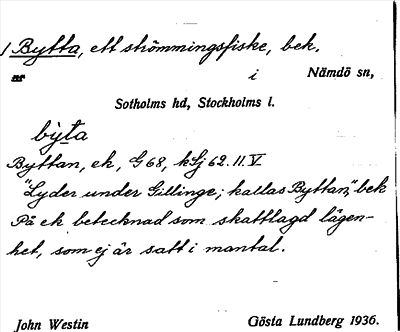 / Bytta, ett strömmingsfiske, bek.
nr i Nämdö sn,
Sotholms hd, Stockholms l.
by̱ta
Byttan, ek, G 68, kLj 62. 11. V
"Lyder under Gillinge; kallas Byttan", bek
På ek betecknad som skattlagd lägen-
het, som ej är satt i mantal.
John Westin Gösta Lundberg 1936.